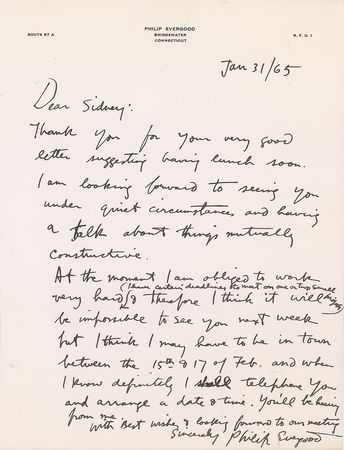 PHILIP EVERGOOD
ROUTE 67 A BRIDGEWATER R. F. D. 1
CONNECTICUT
Jan 31/65
Dear Sidney:
Thank you for your very good
letter suggesting having lunch soon.
I am looking forward to seeing you
under quiet circumstances and having
a talk about things mutually
constructive.
At the moment I am obliged to work
very hard (I have certain deadlines to meet on one or two small
& therefore I think it will
be impossible to see you next week
but I think I may have to be in town
between the 15th & 17 of Feb. and when
I know definitely I shall telephone you
and arrange a date & time. You'll be hearing
from me.
With Best wishes & looking forward to our meeting
Sincerely Philip Evergood